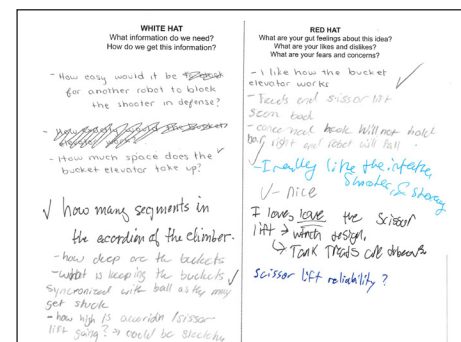 WHITE HAT
What information do we need?
How do we get this information?
- How easy would it be
for another robot to block
the shooter in defense?
- How much space does the
bucket elevator take up?
how many segments in
the acordion of the climber.
- how deep are the buckets
- what is keeping the buckets
syncronized with ball as they may
get stuck
- how high is acordin/sissor
lift going? → could be sketchy
RED HAT
What are your gut feelings about this idea?
What are your likes and dislikes?
What are your fears and concerns?
- I like how the bucket
elevator works
- Treads and scissor lift
seem bad
- concerned hook will not hold
bar right and robot will fall.
- I really like the intake,
Shooter, & storage
V - nice
I love, love the scissor
lift → winch design.
↳ Tank Treads are
scissor lift reliability?